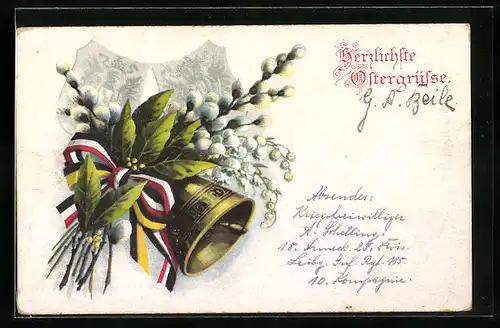 Herzlichste
Ostergrüsse.
G. A. Beile.
Absender:
Kriegsfreiwilliger
A. Schelling
18. Armeek. 25. Divis.
Leibg. Inf. Rgt. 115
10. Kompagnie.